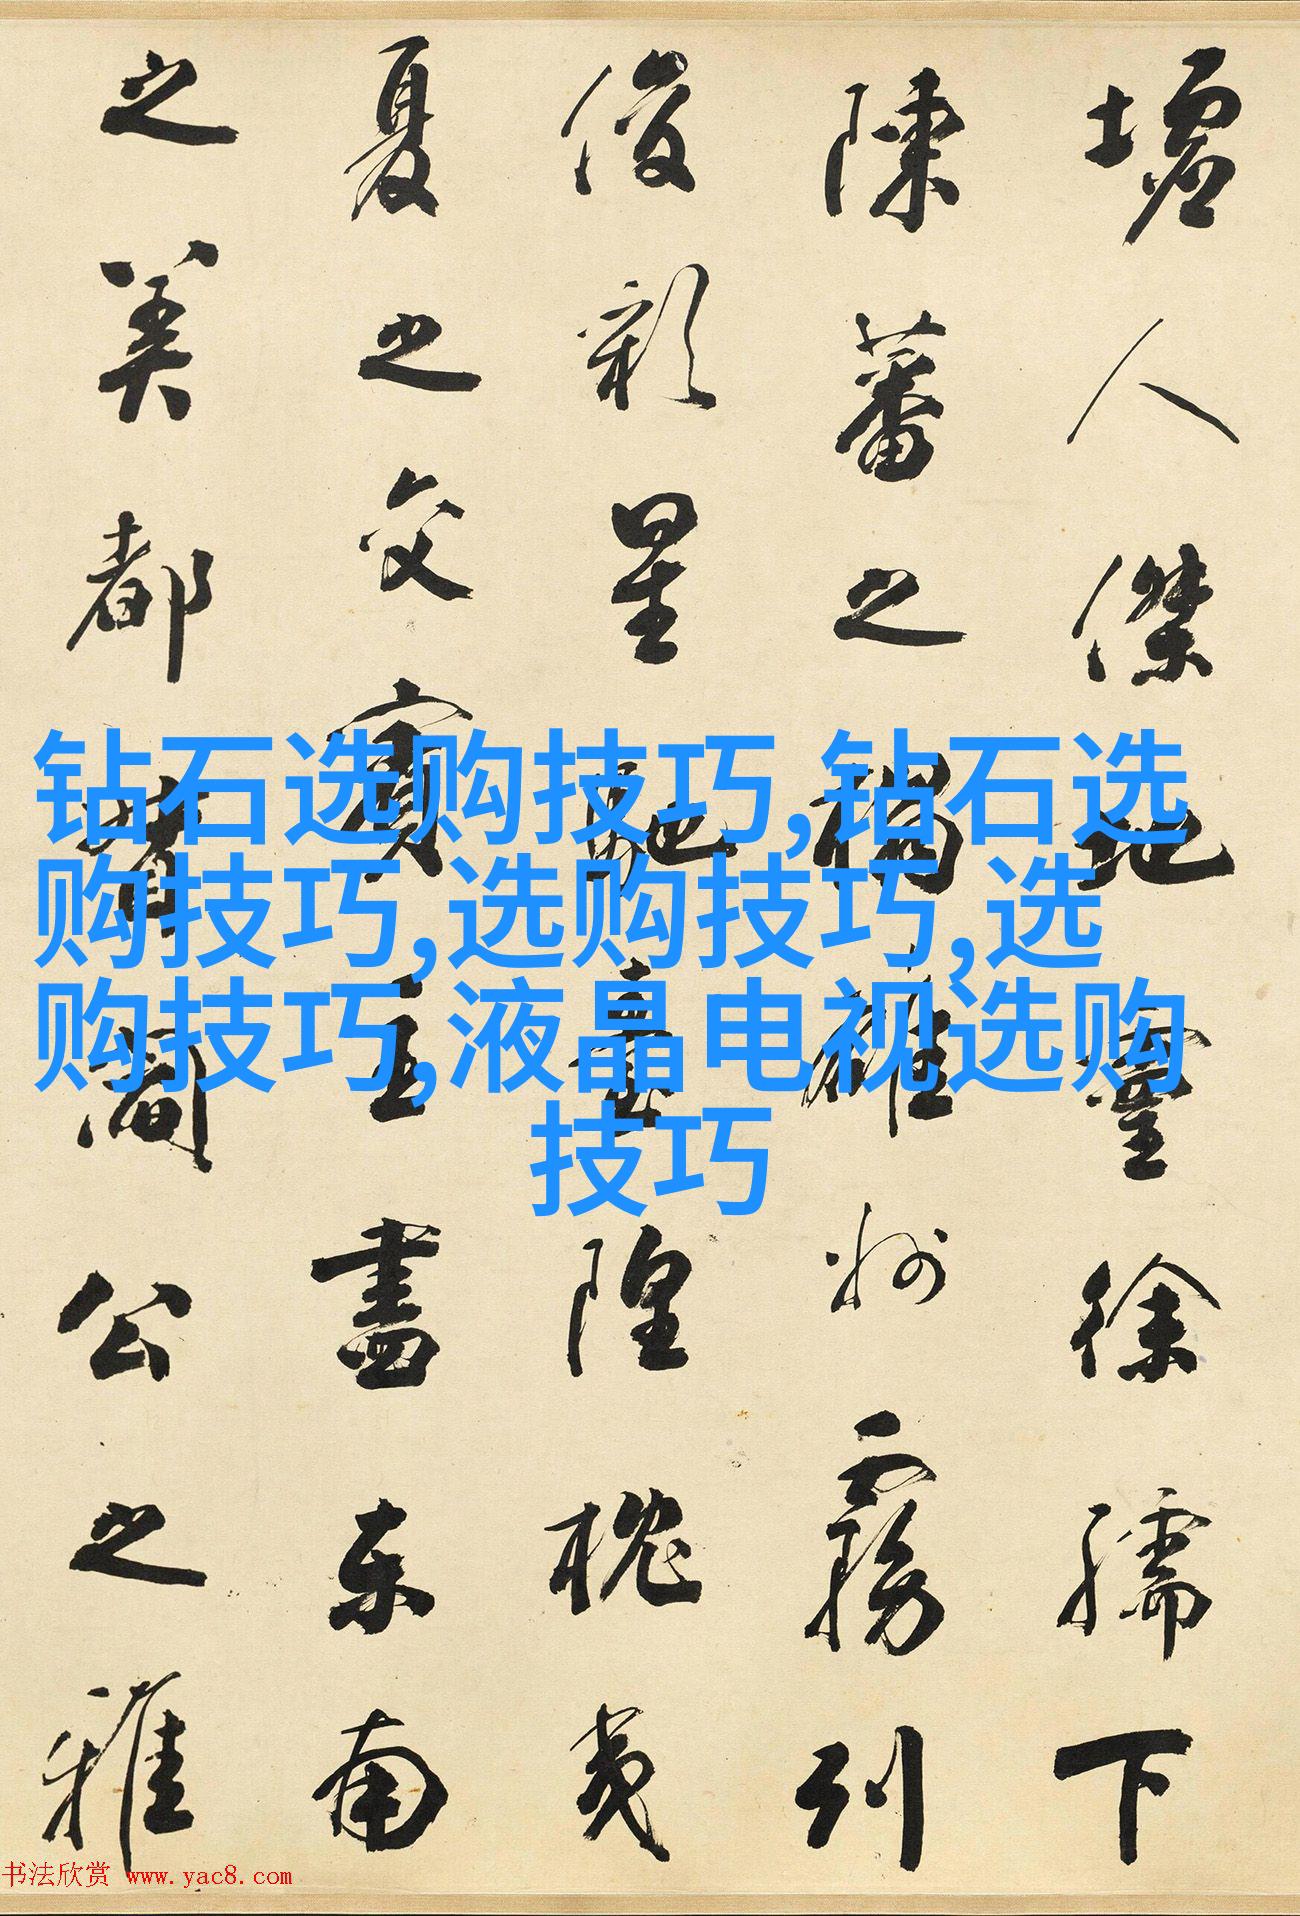 墟人傑地靈徐孺下
陳蕃之榻雄州霧列
俊彩星馳臺隍枕夷
夏之交賓主盡東南
之美都督閻公之雅
钻石选购技巧,钻石选
购技巧,选购技巧,选
购技巧,液晶电视选购
技巧
书法欣赏 www.yac8.com